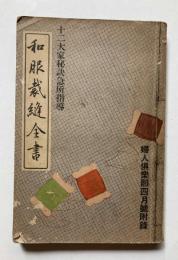 十二大家秘訣急所指導
和服裁縫全書
婦人倶楽部四月號附録